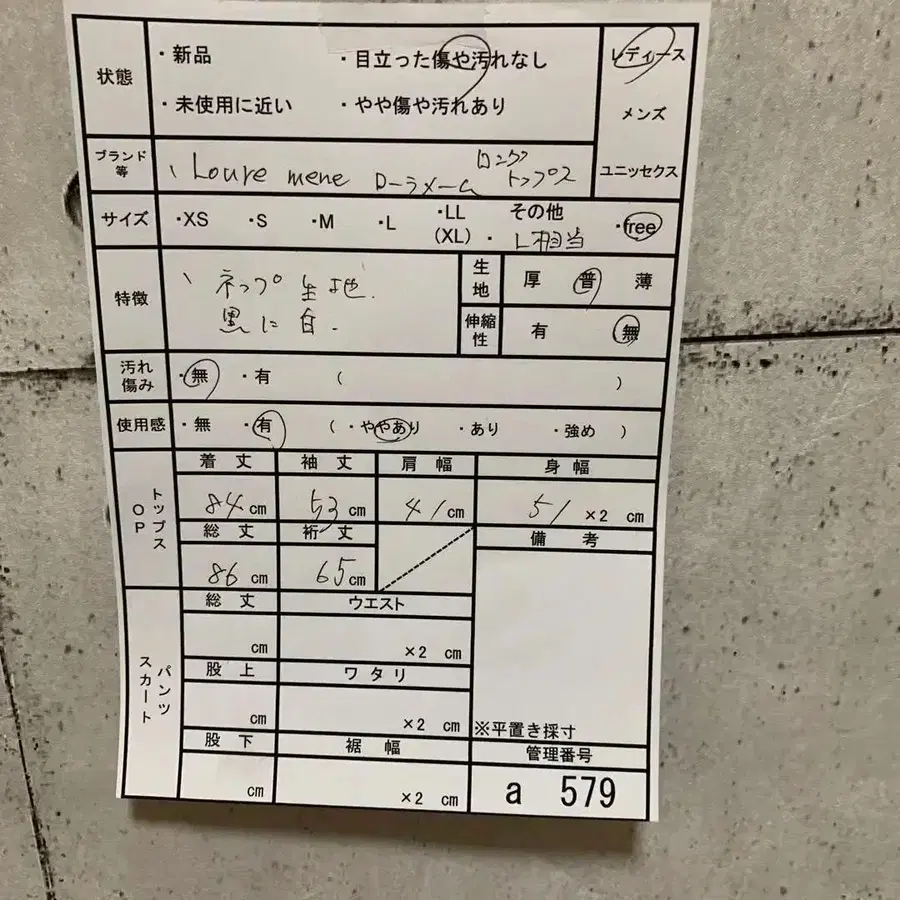 状態
・新品
・目立った傷や汚れなし
・未使用に近い
・やや傷や汚れあり
レディース
メンズ
ユニッセクス
ブランド等
Loure mene ローラメーム ロングトップス
サイズ
・XS ・S ・M ・L ・LL(XL) ・その他 L相当 ・free
特徴
ネップ生地
黒に白.
生地
厚 普 薄
伸縮性
有 無
汚れ傷み
・無 ・有 ( )
使用感
・無 ・有 (・ややあり ・あり ・強め )
トップス OP
着丈 袖丈 肩幅 身幅
84cm 53cm 41cm 51×2 cm
総丈 裄丈 備考
86cm 65cm
パンツ スカート
総丈 ウエスト
cm ×2 cm
股上 ワタリ
cm ×2 cm
※平置き採寸
股下 裾幅 管理番号
cm ×2 cm a 579